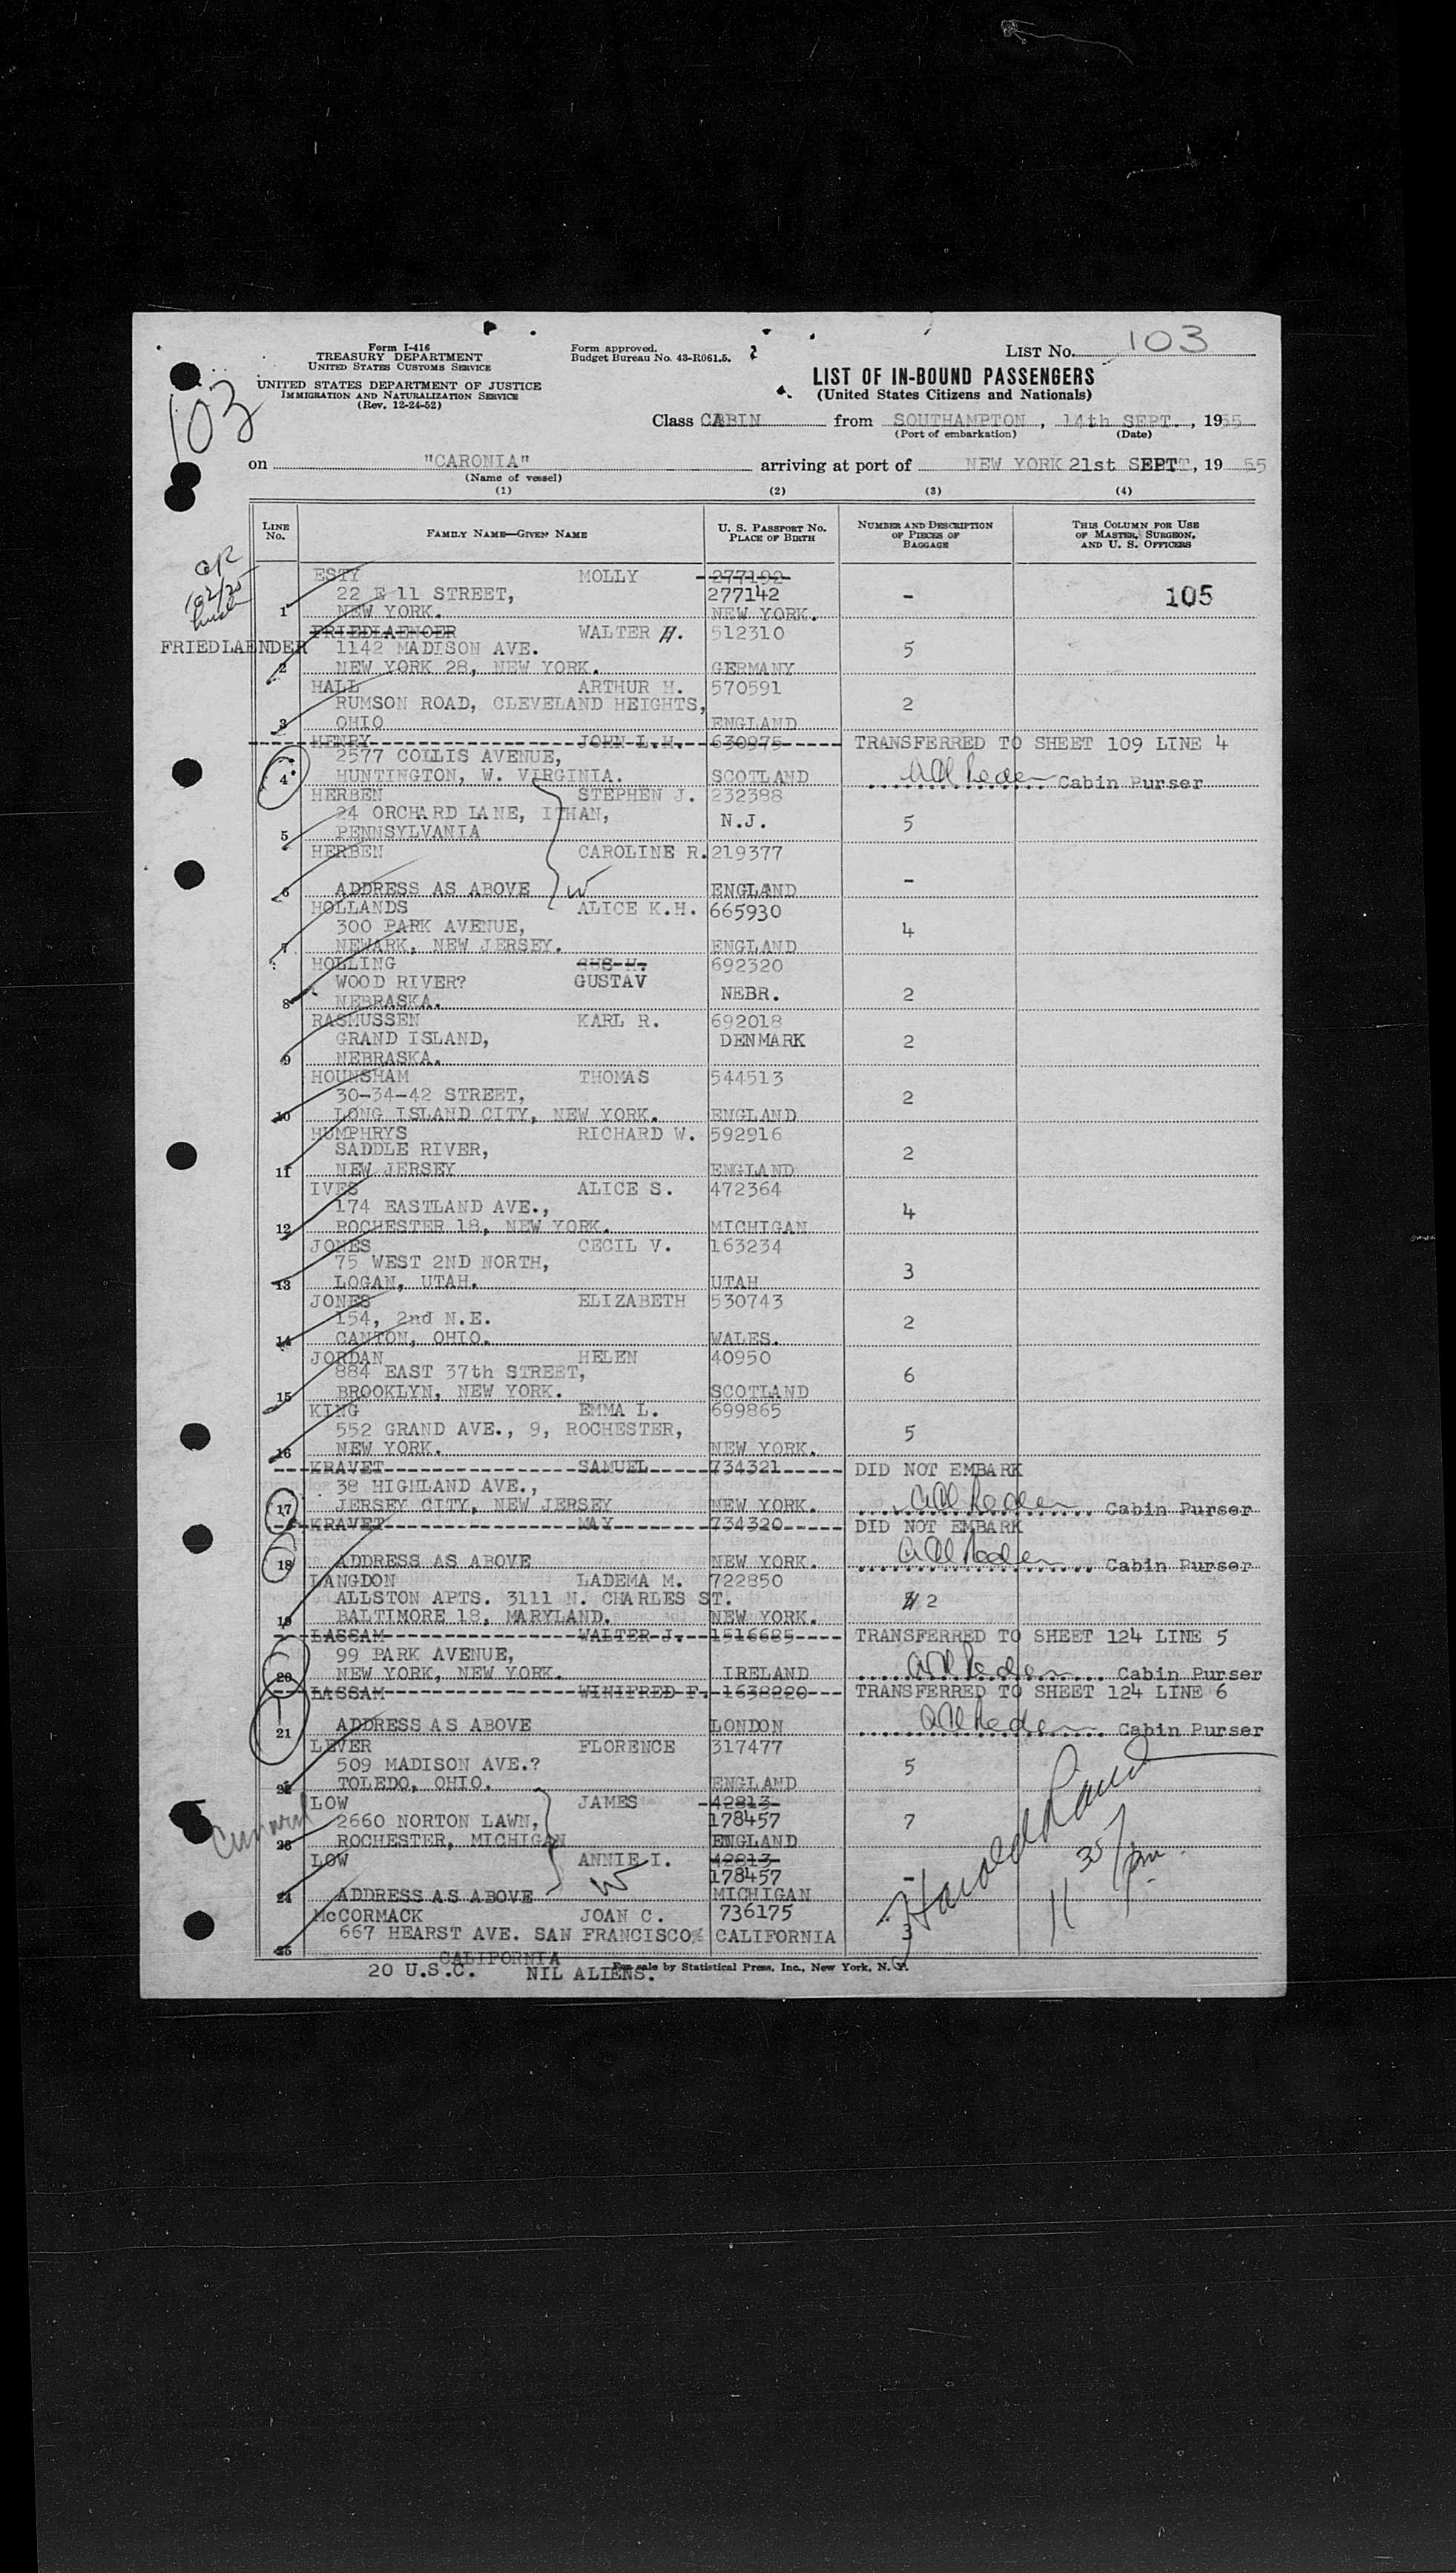 Form I-416
TREASURY DEPARTMENT
UNITED STATES CUSTOMS SERVICE
UNITED STATES DEPARTMENT OF JUSTICE
IMMIGRATION AND NATURALIZATION SERVICE
(Rev. 12-24-52)
Form approved.
Budget Bureau No. 43-R061.5.
LIST No. 103
103
LIST OF IN-BOUND PASSENGERS
(United States Citizens and Nationals)
Class CABIN from SOUTHAMPTON, 14th SEPT., 1955
(Port of embarkation) (Date)
on "CARONIA" arriving at port of NEW YORK 21st SEPT, 19 55
(Name of vessel)
(1) (2) (3) (4)
LINE No. FAMILY NAME—GIVEN NAME U. S. PASSPORT No. PLACE OF BIRTH NUMBER AND DESCRIPTION OF PIECES OF BAGGAGE THIS COLUMN FOR USE OF MASTER, SURGEON, AND U. S. OFFICERS
ESTY MOLLY 277192
22 E 11 STREET, 277142 - 105
1 NEW YORK. NEW YORK.
FRIEDLAENOER WALTER H. 512310
FRIEDLAENDER 1142 MADISON AVE. 5
2 NEW YORK 28, NEW YORK. GERMANY
HALL ARTHUR H. 570591
RUMSON ROAD, CLEVELAND HEIGHTS, 2
3 OHIO ENGLAND
HENRY JOHN L.H. 630975 TRANSFERRED TO SHEET 109 LINE 4
2577 COLLIS AVENUE,
4 HUNTINGTON, W. VIRGINIA. SCOTLAND Cabin Purser
HERBEN STEPHEN J. 232388
24 ORCHARD LANE, ITHAN, N.J. 5
5 PENNSYLVANIA
HERBEN CAROLINE R. 219377
-
6 ADDRESS AS ABOVE W ENGLAND
HOLLANDS ALICE K.H. 665930
300 PARK AVENUE, 4
7 NEWARK, NEW JERSEY. ENGLAND
HOLLING GUS H. 692320
WOOD RIVER? GUSTAV NEBR. 2
8 NEBRASKA.
RASMUSSEN KARL R. 692018
GRAND ISLAND, DENMARK 2
9 NEBRASKA.
HOUNSHAM THOMAS 544513
30-34-42 STREET, 2
10 LONG ISLAND CITY, NEW YORK. ENGLAND
HUMPHRYS RICHARD W. 592916
SADDLE RIVER, 2
11 NEW JERSEY ENGLAND
IVES ALICE S. 472364
174 EASTLAND AVE., 4
12 ROCHESTER 18, NEW YORK. MICHIGAN
JONES CECIL V. 163234
75 WEST 2ND NORTH, 3
13 LOGAN, UTAH. UTAH
JONES ELIZABETH 530743
154, 2nd N.E. 2
14 CANTON, OHIO. WALES.
JORDAN HELEN 40950
884 EAST 37th STREET, 6
15 BROOKLYN, NEW YORK. SCOTLAND
KING EMMA L. 699865
552 GRAND AVE., 9, ROCHESTER, 5
16 NEW YORK. NEW YORK.
KRAVET SAMUEL 734321 DID NOT EMBARK
38 HIGHLAND AVE.,
17 JERSEY CITY, NEW JERSEY NEW YORK. Cabin Purser
KRAVET MAY 734320 DID NOT EMBARK
18 ADDRESS AS ABOVE NEW YORK. Cabin Purser
LANGDON LADEMA M. 722850
ALLSTON APTS. 3111 N. CHARLES ST. 2
19 BALTIMORE 18, MARYLAND. NEW YORK.
LASSAM WALTER J. 1516685 TRANSFERRED TO SHEET 124 LINE 5
99 PARK AVENUE,
20 NEW YORK, NEW YORK. IRELAND Cabin Purser
LASSAM WINIFRED F. 1638220 TRANSFERRED TO SHEET 124 LINE 6
21 ADDRESS AS ABOVE LONDON Cabin Purser
LEVER FLORENCE 317477
509 MADISON AVE.? 5
22 TOLEDO, OHIO. ENGLAND
LOW JAMES 42813
2660 NORTON LAWN, 178457 7
23 ROCHESTER, MICHIGAN ENGLAND
LOW ANNIE I. 42813
W 178457 -
24 ADDRESS AS ABOVE MICHIGAN
McCORMACK JOAN C. 736175
667 HEARST AVE. SAN FRANCISCO CALIFORNIA 3
25 CALIFORNIA
20 U.S.C. NIL ALIENS. For sale by Statistical Press, Inc., New York, N. Y.